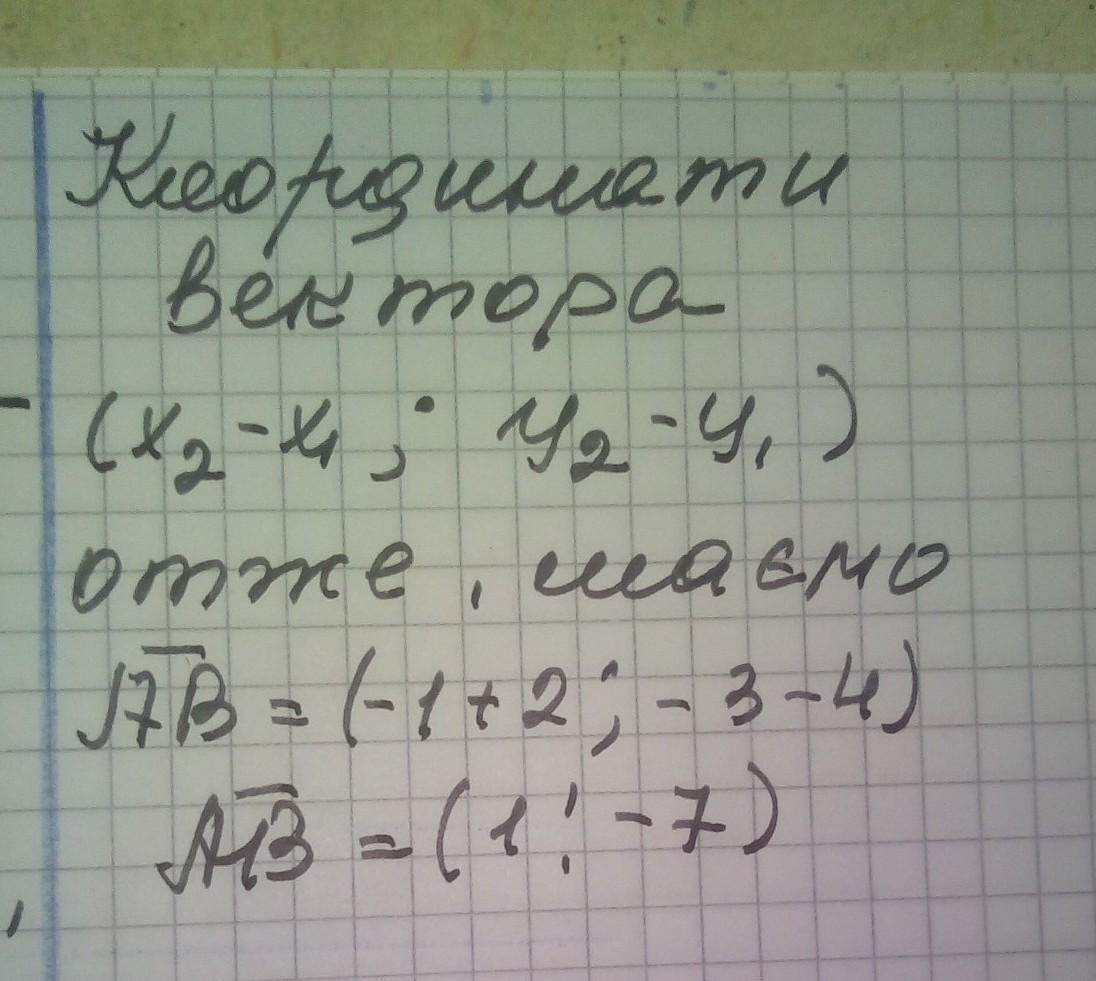 Координати
вектора
(x₂ - x₁ ; y₂ - y₁)
отже, маємо
A̅B̅ = (-1 + 2 ; - 3 - 4)
A̅B̅ = (1 ; - 7)